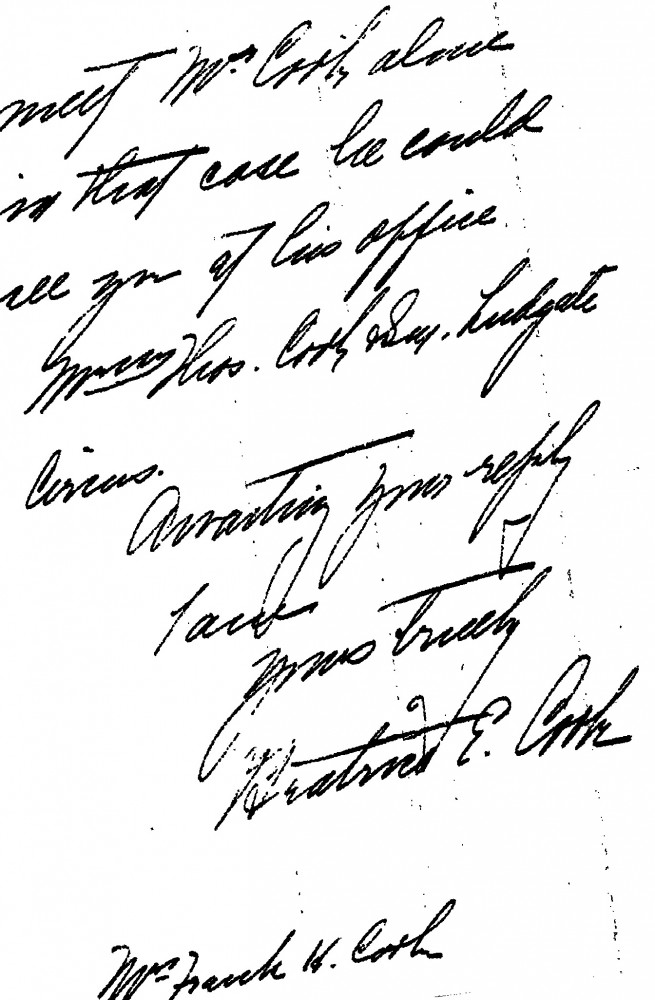 meet Mr. Cook, alone
in that case he could
see you at his office
Messrs Thos. Cook & Son. Ludgate
Circus.
Awaiting your reply
I am
Yours truly
Beatrice E. Cook
Mrs Frank H. Cook